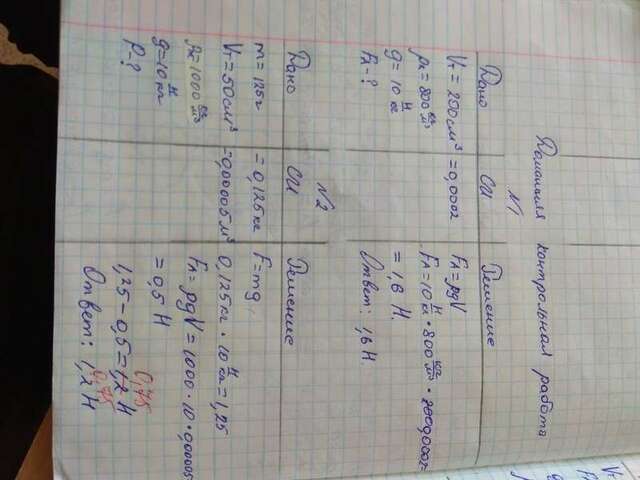 Домашняя контрольная работа
№1
Дано
СИ
Решение
Vт = 200 см³ = 0,0002
Fа = ρgV
ρж = 800 кг/м³
Fа = 10 Н/кг · 800 кг/м³ · 0,0002 =
g = 10 Н/кг
= 1,6 Н.
Fа - ?
Ответ: 1,6 Н
№2
Дано
СИ
Решение
m = 125 г
= 0,125 кг
F = mg
Vт = 50 см³
= 0,00005 м³
0,125 кг · 10 Н/кг = 1,25
ρж = 1000 кг/м³
Fа = ρgV = 1000 · 10 · 0,00005
g = 10 Н/кг
= 0,5 Н
P - ?
0,75
1,25 - 0,5 = 1,2 Н
0,75
Ответ: 1,2 Н